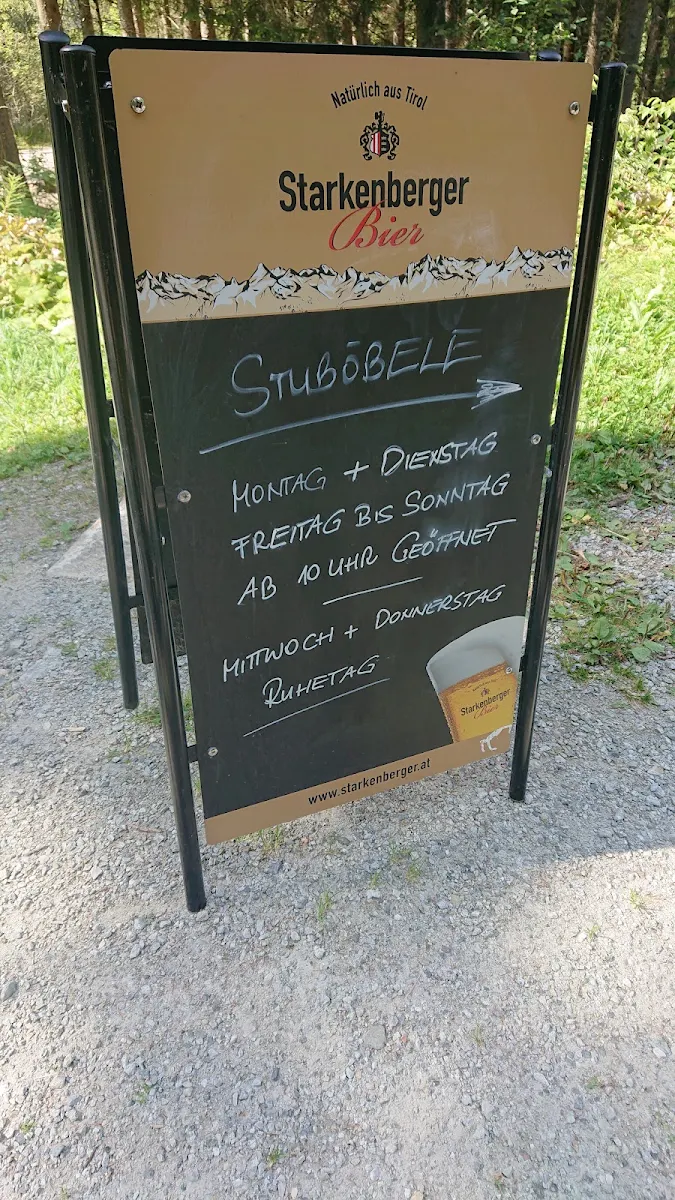 Natürlich aus Tirol
Starkenberger
Bier
STUBÖBELE
MONTAG + DIENSTAG
FREITAG BIS SONNTAG
AB 10 UHR GEÖFFNET
MITTWOCH + DONNERSTAG
RUHETAG
Starkenberger
Bier
www.starkenberger.at